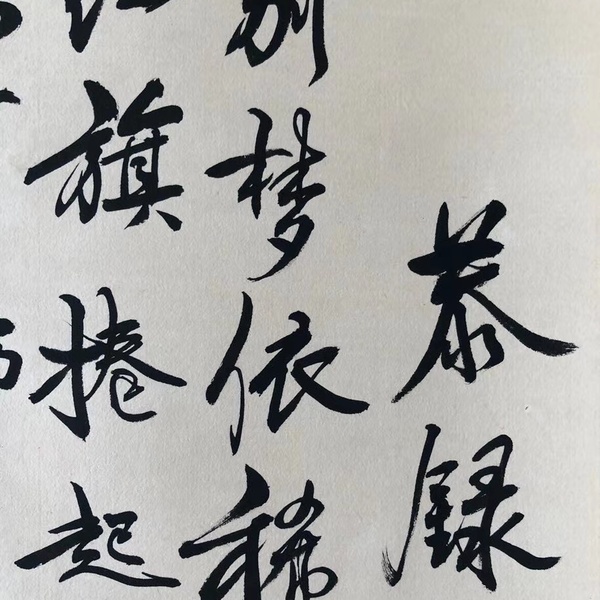 恭録
别梦依稀
红旗捲起